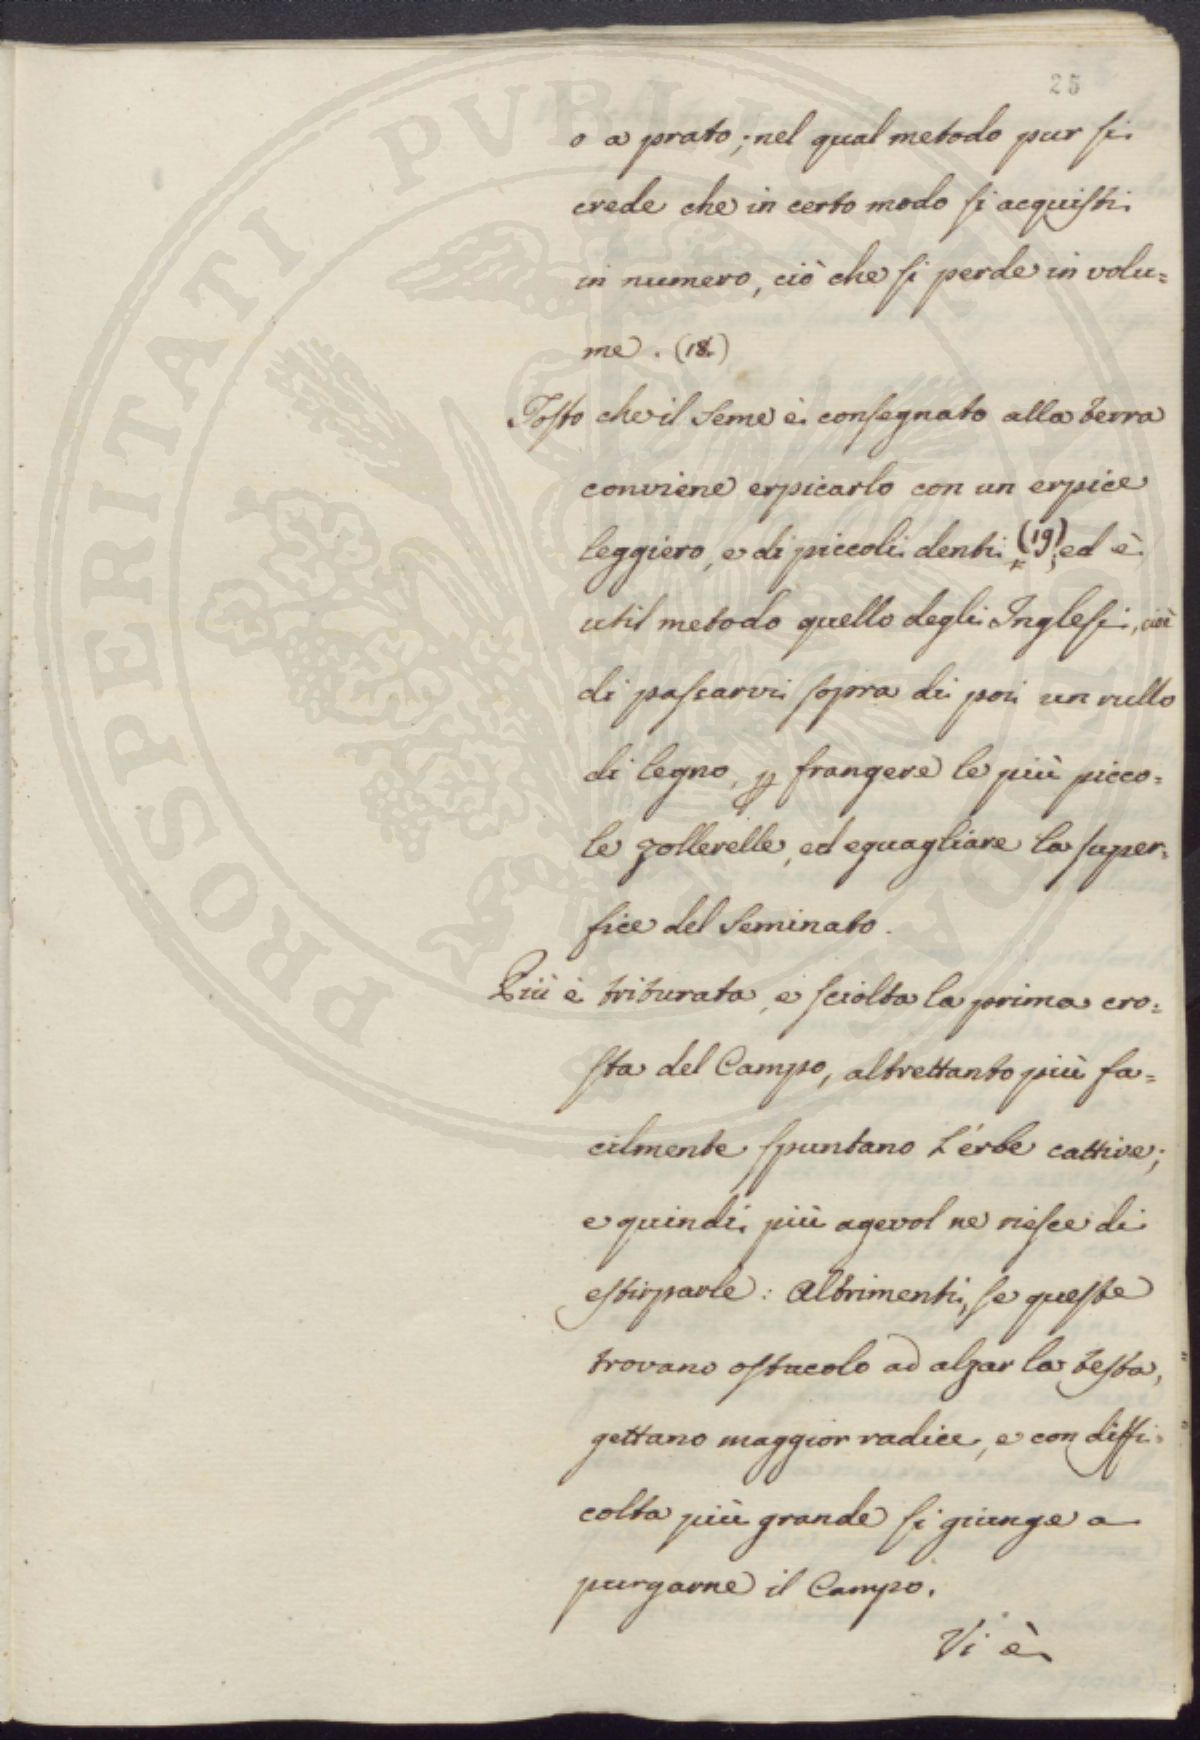 25
o a prato; nel qual metodo pur si
crede che in certo modo si acquisti
in numero, ciò che si perde in volu=
me. (18.)
Tosto che il Seme è consegnato alla terra
conviene erpicarlo con un erpice
leggiero, e di piccoli denti (19); ed è
util metodo quello degli Inglesi, cioè
di passarvi sopra di poi un rullo
di legno, p frangere le più picco=
le zollerelle, ed eguagliare la super=
fice del Seminato.
Più è triturata, e sciolta la prima cro=
sta del Campo, altrettanto più fa=
cilmente spuntano l'erbe cattive;
e quindi più agevol ne riesce di
estirparle: Altrimenti, se queste
trovano ostacolo ad alzar la testa,
gettano maggior radice, e con diffi=
coltà più grande si giunge a
purgarne il Campo.
Vi è
PROSPERITATI PVBLICAE